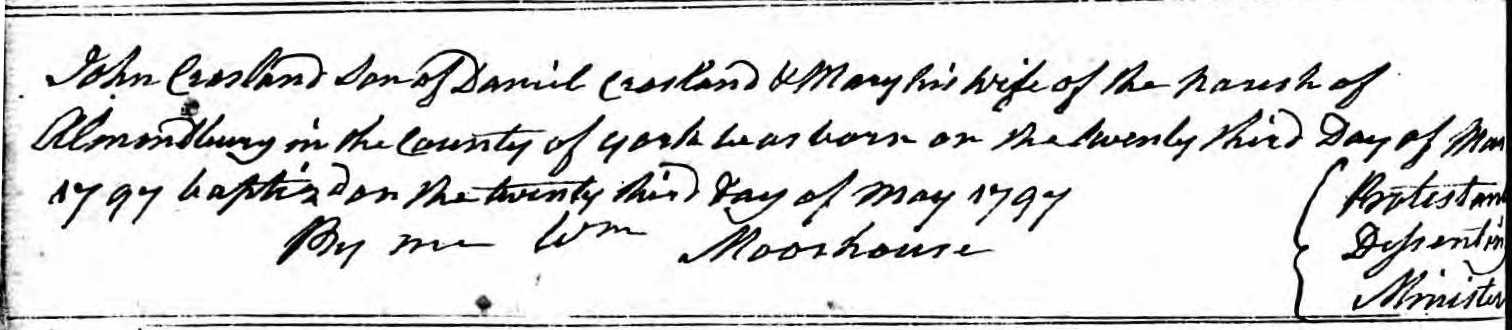 John Crosland Son of Daniel Crosland & Mary his Wife of the Parish of
Almondbury in the County of York was born on the twenty third Day of Mar
1797 baptizd on the twenty third Day of May 1797 { Protestant
By me Wm Moorhouse Dissenting
Minister